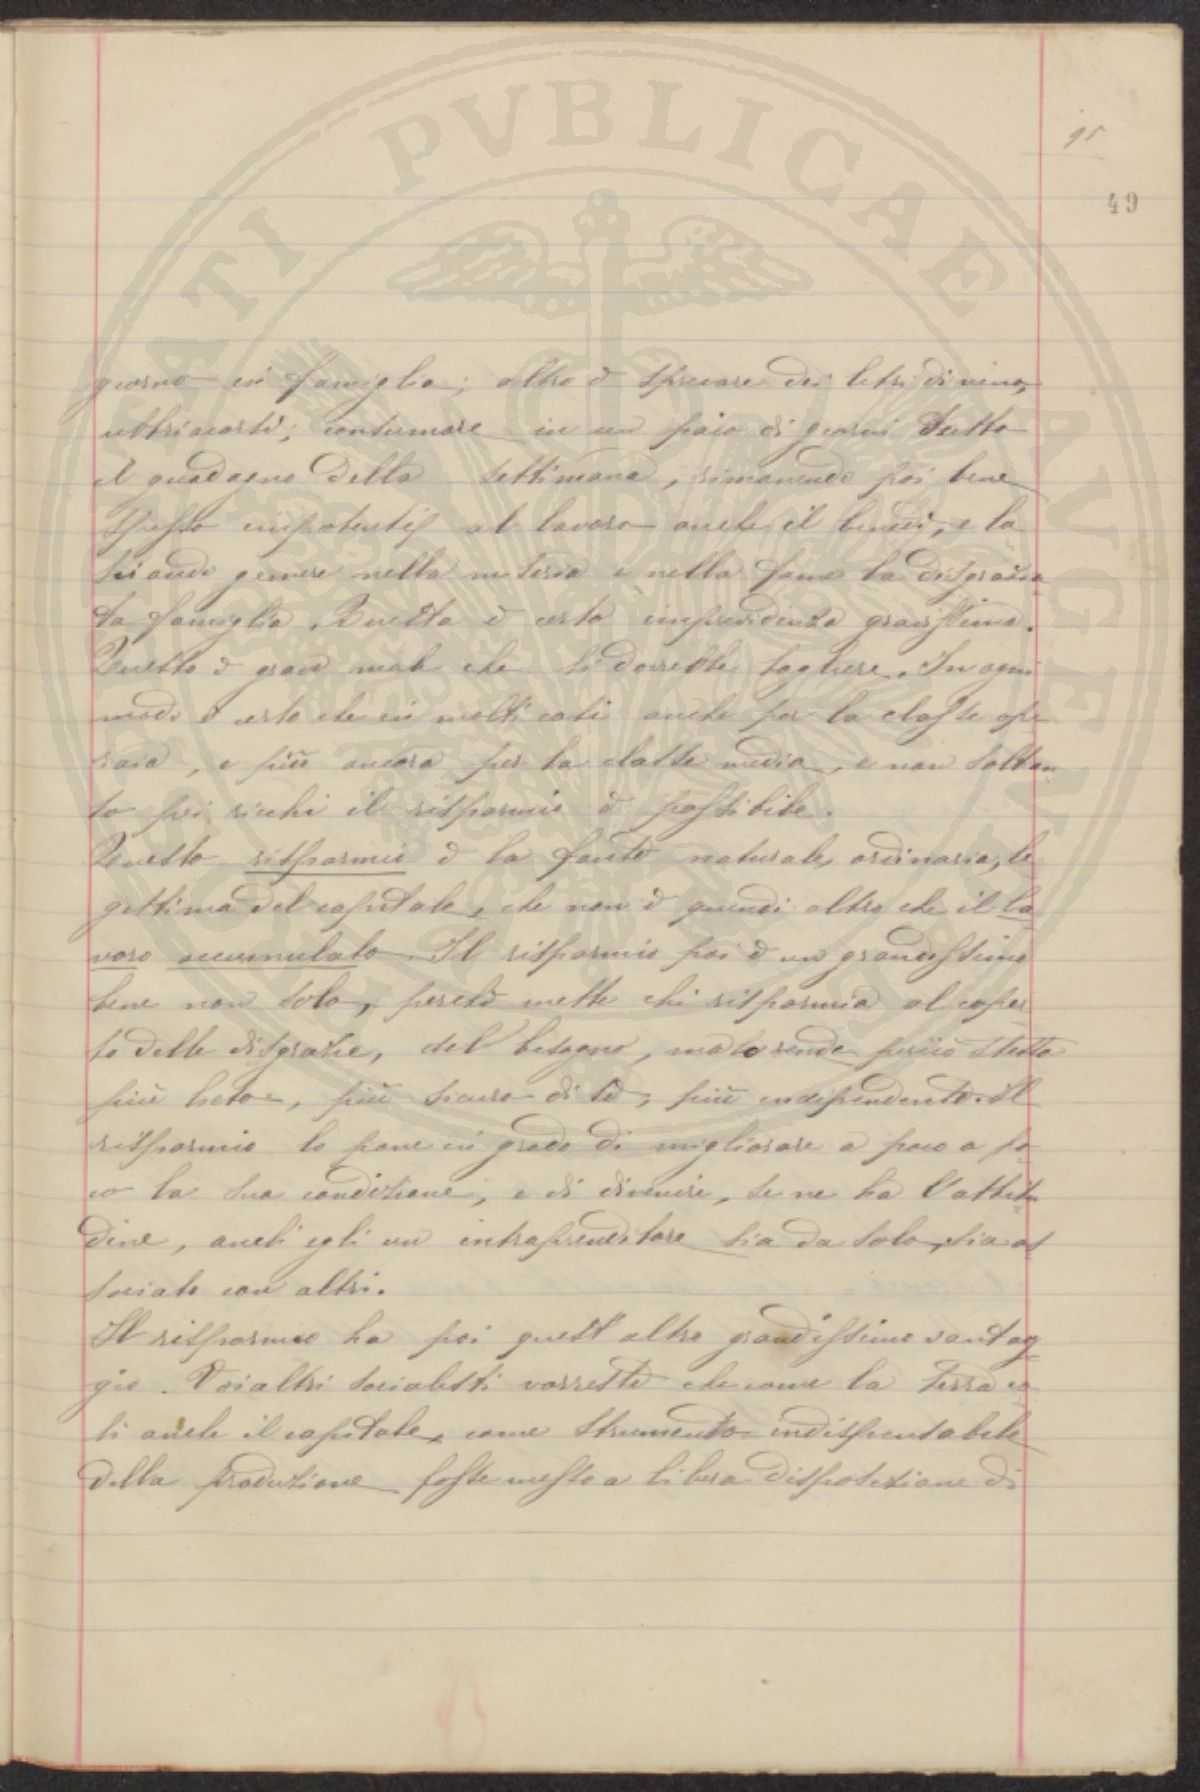 PUBLICAE
95
49
giorno in famiglia; altro è sprecare dei litri di vino,
ubbriacarsi; consumare in un paio di giorni tutto
il guadagno della settimana, rimanendo poi bene
spesso impotenti al lavoro anche il lunedì, e la
sciando gemere nella miseria e nella fame la disgrazia
ta famiglia. Questa è certo imprevidenza gravissima.
Questo è gran male che si dovrebbe togliere. In ogni
modo è certo che in molti casi anche per la classe ope
raia, e più ancora per la classe media, e non soltan
to pei ricchi il risparmio è possibile.
Questo risparmio è la fonte naturale, ordinaria, le
gittima del capitale, che non è quindi altro che il la
voro accumulato. Il risparmio poi è un grandissimo
bene non solo, perchè mette chi risparmia al coper
to delle disgrazie, del bisogno, ma lo rende perciò stesso
più lieto, più sicuro di sè, più indipendente. Il
risparmio lo pone in grado di migliorare a poco a po
co la sua condizione, e di divenire, se ne ha l'attitu
dine, anch'egli un intraprenditore sia da solo, sia as
sociato con altri.
Il risparmio ha poi quest'altro grandissimo vantag
gio. Voialtri socialisti vorreste che come la terra co
sì anche il capitale, come strumento indispensabile
della produzione fosse messo a libera disposizione di